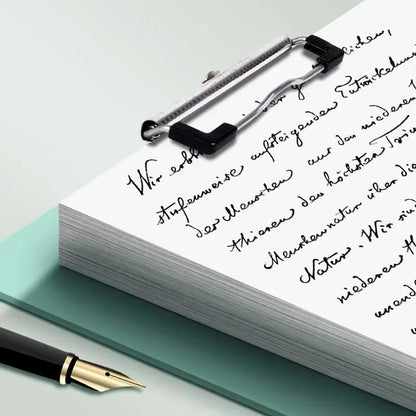 lichen,
Wir erbl
stufenweise aufsteigenden Entwickelun
der Menschen aus den niederen
thieren den höchsten Tri
Menschennatur über die
Natur. Wir sind
niederen
unend